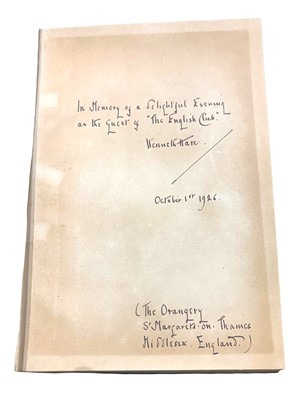 In Memory of a delightful Evening
as the Guest of "The English Club."
Kenneth Hare.
October 1st 1926.
(The Orangery
St Margarets-on-Thames
Middlesex. England.)